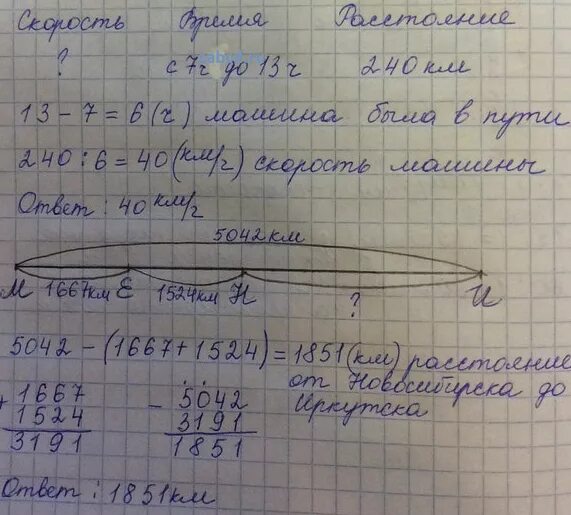 Скорость Время Расстояние
? с 7ч до 13ч 240 км
13 - 7 = 6 (ч) машина была в пути
240 : 6 = 40 (км/ч) скорость машины
Ответ : 40 км/ч
5042 км
М 1667км Е 1524км Н ? И
5042 - (1667 + 1524) = 1851 (км) расстояние
от Новосибирска до
Иркутска
+ 1667 - 5042
1524 3191
3191 1851
Ответ : 1851 км